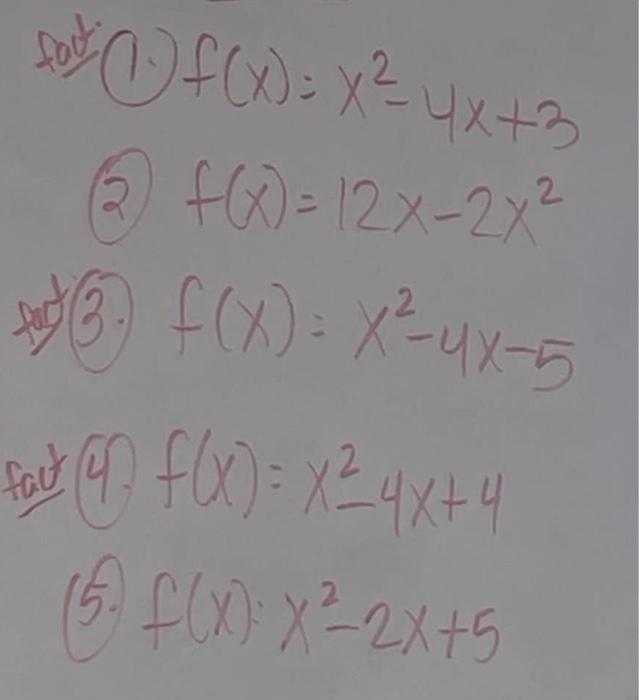 fact. 1. f(x) = x² - 4x + 3
2 f(x) = 12x - 2x²
fact 3. f(x) = x² - 4x - 5
fact 4. f(x) = x² - 4x + 4
5. f(x) = x² - 2x + 5